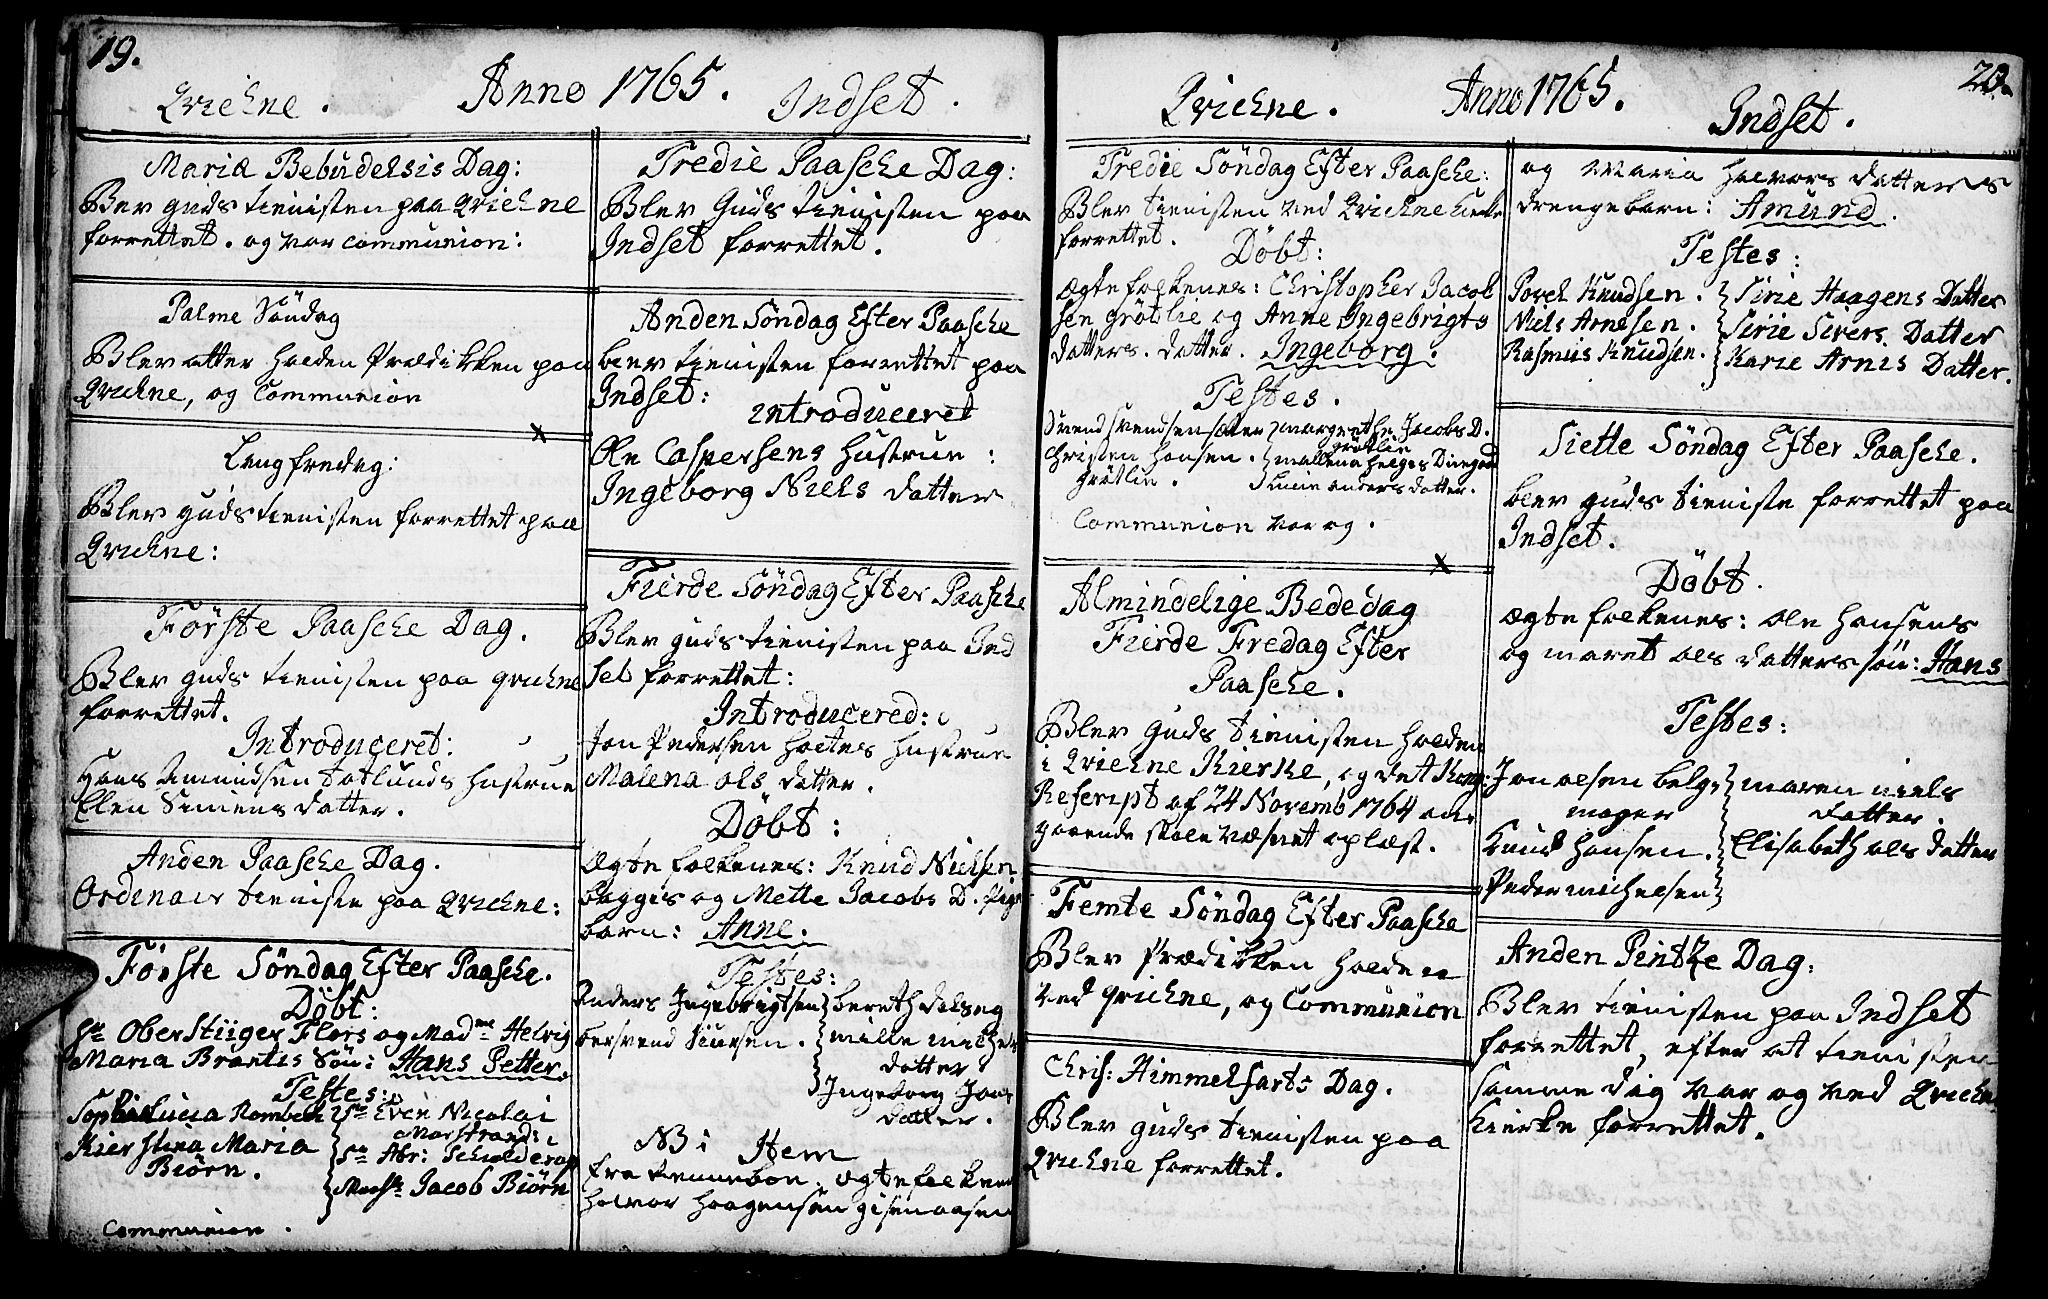 19.
Anno 1765.
Qvichne.
Indset.
Mariæ Bebudelsis Dag:
Blev Guds tienisten paa Qvichne
forrettet. og var communion:
Palme Söndag
Blev atter holden Prædikken paa
Qvichne, og Communion
Langfredag:
Blev guds tienisten forrettet paa
Qvichne:
Förste Paasche Dag.
Blev guds tienisten paa qvichne
forrettet.
Introduceret:
Hans Amundsen Hustrue
Ellen Simens datter.
Anden Paasche Dag.
Ordinair tieniste paa Qvichne:
Förste Söndag Efter Paasche.
Döbt:
Hr OberStiiger Flors og Madme Helvig
Maria Brantis Sön: Hans Petter.
Testes:
Sophia Lucia Hr Even Nicolai
Marstrand:
Kierstina Maria Hr Abr:
Biörn. Jacob Biörn
Communion.
Tredie Paasche Dag:
Blev Guds tienisten paa
Indset forrettet.
Anden Söndag Efter Paasche
blev tienisten forrettet paa
Indset:
introduceret
Ole Caspersens Hustrue:
Ingeborg Niels datter
Fierde Söndag Efter Paasche
Blev guds tienisten paa Ind
Set forrettet:
Introducered:
Jon Pedersen Hustrue
Malena ols datter.
Döbt:
Ægte folkenes: Knud Nielsen
og Mette Jacobs D. Pige
barn: Anne.
Testes:
Anders Ingebrigtsen bereth
bersvend Siursen. mille
datter.
Ingeborg Jons
datter.
NB: Hem
fra ægtefolkene
Halvor Haagensen
20.
Anno 1765.
Qvichne.
Indset.
Tredie Söndag Efter Paasche:
Blev tienisten ved Qvichne Kirke
forrettet.
Döbt:
Ægte folkenes: Christopher Jacob
sen grötlie og Anne Ingebrigts
datters. datter. Ingeborg.
Testes.
Svend Svendsen margrethe Jacobs D.
grötlie
Christen Hansen. mallena
grötlie. anders datter.
Communion var og.
Almindelige Bededag
Fierde Fredag Efter
Paasche.
Blev Guds tienisten holden
i Qvichne Kierke, og det Kong:
Rescript af 24 Novemb 1764 an
gaaende skole væsnet oplæst.
Femte Söndag Efter Paasche
Blev Prædikken holden
ved qvichne, og Communion
Chris: Himmelfarts Dag.
Blev guds tienisten paa
Qvichne forrettet.
og Maria Halvors datters
drengebarn: Amund.
Testes:
Povel Knudsen. Sirie Haagens Datter
Niels Arnesen. Sirie Sivers Datter
Rasmus Knudsen. Karie Arnes Datter.
Siette Söndag Efter Paasche.
blev guds tieniste forrettet paa
Indset.
Döbt.
Ægte folkenes: ole Hansens
og maret ols datters sön: Hans
Testes:
Jon olsen belg, maren niels
mager datter.
Knud Hansen. Elisabeth ols datter
Peder michelsen
Anden Pintze Dag:
Blev tienisten paa Indset
forrettet, efter at tienisten
samme dag var og ved Qvichne
Kierke forrettet.